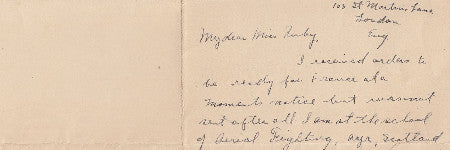 103 St Martins Lane
London
Eng
My dear Miss Ruby,
I received orders to
be ready for France at a
moments notice but wasnt
sent after all I am at the school
of Aerial Fighting, Ayr, Scotland